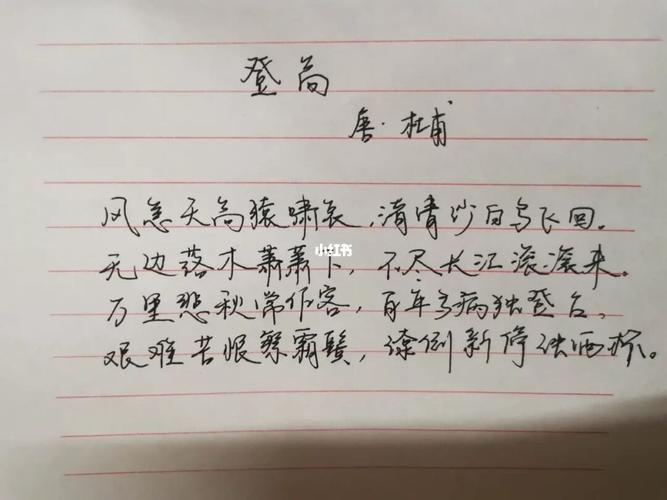 登高
唐·杜甫
风急天高猿啸哀,渚清沙白鸟飞回。
小红书
无边落木萧萧下,不尽长江滚滚来。
万里悲秋常作客,百年多病独登台。
艰难苦恨繁霜鬓,潦倒新停浊酒杯。